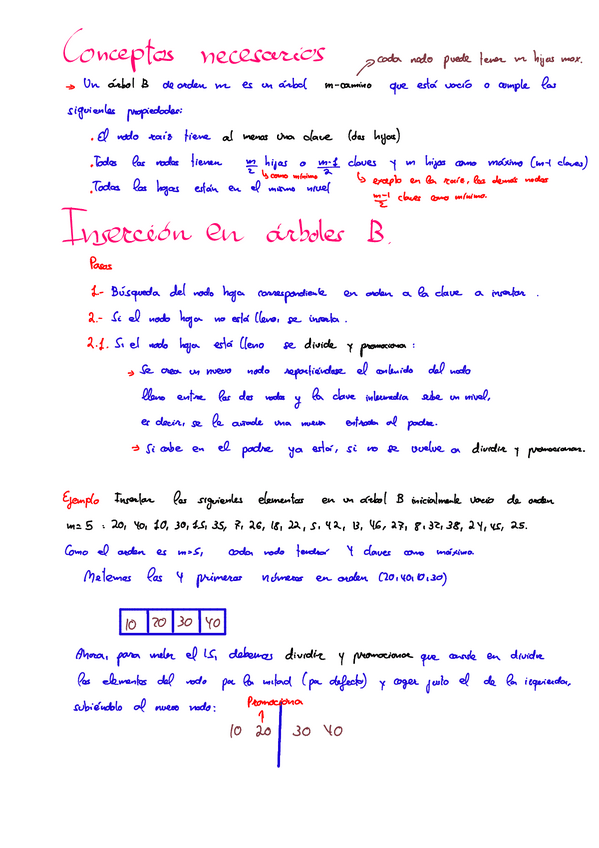 Conceptos necesarios
cada nodo puede tener m hijos max.
→ Un árbol B de orden m es un árbol m-camino que está vacío o cumple las
siguientes propiedades:
. El nodo raíz tiene al menos una clave (dos hijos)
. Todos los nodos tienen m/2 hijos o m-1/2 claves y m hijos como máximo (m-1 claves)
↳ como mínimo
↳ excepto en la raíz, los demás nodos
m-1/2 claves como mínimo.
. Todas las hojas están en el mismo nivel
Inserción en árboles B.
Pasos
1- Búsqueda del nodo hoja correspondiente en orden a la clave a insertar.
2.- Si el nodo hoja no está lleno, se inserta.
2.1. Si el nodo hoja está lleno se divide y promociona:
→ Se crea un nuevo nodo repartiéndose el contenido del nodo
lleno entre los dos nodos y la clave intermedia sube un nivel,
es decir, se le añade una nueva entrada al padre.
→ Si cabe en el padre ya está, si no se vuelve a dividir y promocionar.
Ejemplo Insertar los siguientes elementos en un árbol B inicialmente vacío de orden
m=5 : 20, 40, 10, 30, 15, 35, 7, 26, 18, 22, 5, 42, 13, 46, 27, 8, 32, 38, 24, 45, 25.
Como el orden es m=5, cada nodo tendrá 4 claves como máximo.
Metemos los 4 primeros números en orden (20,40,10,30)
10 20 30 40
Ahora, para meter el 15, debemos dividir y promocionar que consiste en dividir
los elementos del nodo por la mitad (por defecto) y coger justo el de la izquierda,
subiéndolo al nuevo nodo:
Promociona
10 20 30 40